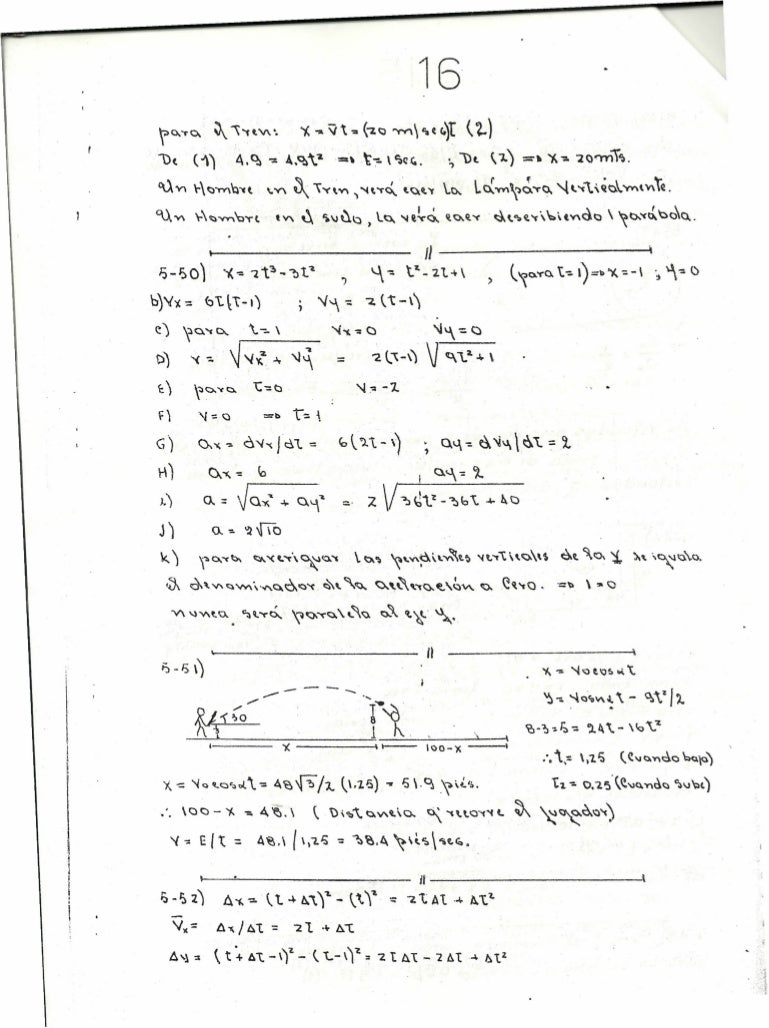 16
para el Tren: x = v̄t = (20 m/seg)t (2)
De (1) 4.9 = 4.9t² => t = 1 seg. ; De (2) => x = 20 mts.
Un Hombre en el Tren, verá caer La Lámpára Verticálmente.
Un Hombre en el suelo, La verá caer describiendo 1 parábola.
//
5-50) x = 2t³-3t² , y = t²-2t+1 , (para t=1) => x=-1 ; y=0
b) Vx = 6t(t-1) ; Vy = 2(t-1)
c) para t=1 Vx=0 Vy=0
D) v = √(Vx² + Vy²) = 2(t-1) √(9t²+1)
E) para t=0 V=-2
F) V=0 => t=1
G) ax = dVx/dt = 6(2t-1) ; ay = dVy/dt = 2
H) ax = 6 ay = 2
i) a = √(ax² + ay²) = 2 √(36t²-36t+40)
J) a = 2√10
K) para averiguar las pendientes verticales de la y se iguala
el denominador de la aceleración a Cero. => 1=0
nunca será paralela al eje y.
//
5-51) x = Vo cosα t
y = Vo senα t - gt²/2
30
3
8
8-3=5 = 24t-16t²
x
100-x
∴ t₁ = 1,25 (Cuando baja)
x = Vo cosα t = 48√3/2 (1.25) = 51.9 piés. t2 = 0.25 (Cuando Sube)
∴ 100-x = 48.1 ( Distancia q' recorre el jugador)
V = E/t = 48.1/1,25 = 38.4 piés/seg.
//
5-52) Δx = (t+Δt)² - (t)² = 2tΔt + Δt²
V̄x = Δx/Δt = 2t + Δt
Δy = (t+Δt-1)² - (t-1)² = 2tΔt - 2Δt + Δt²